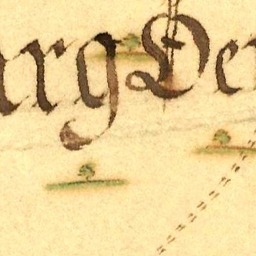 arg Der